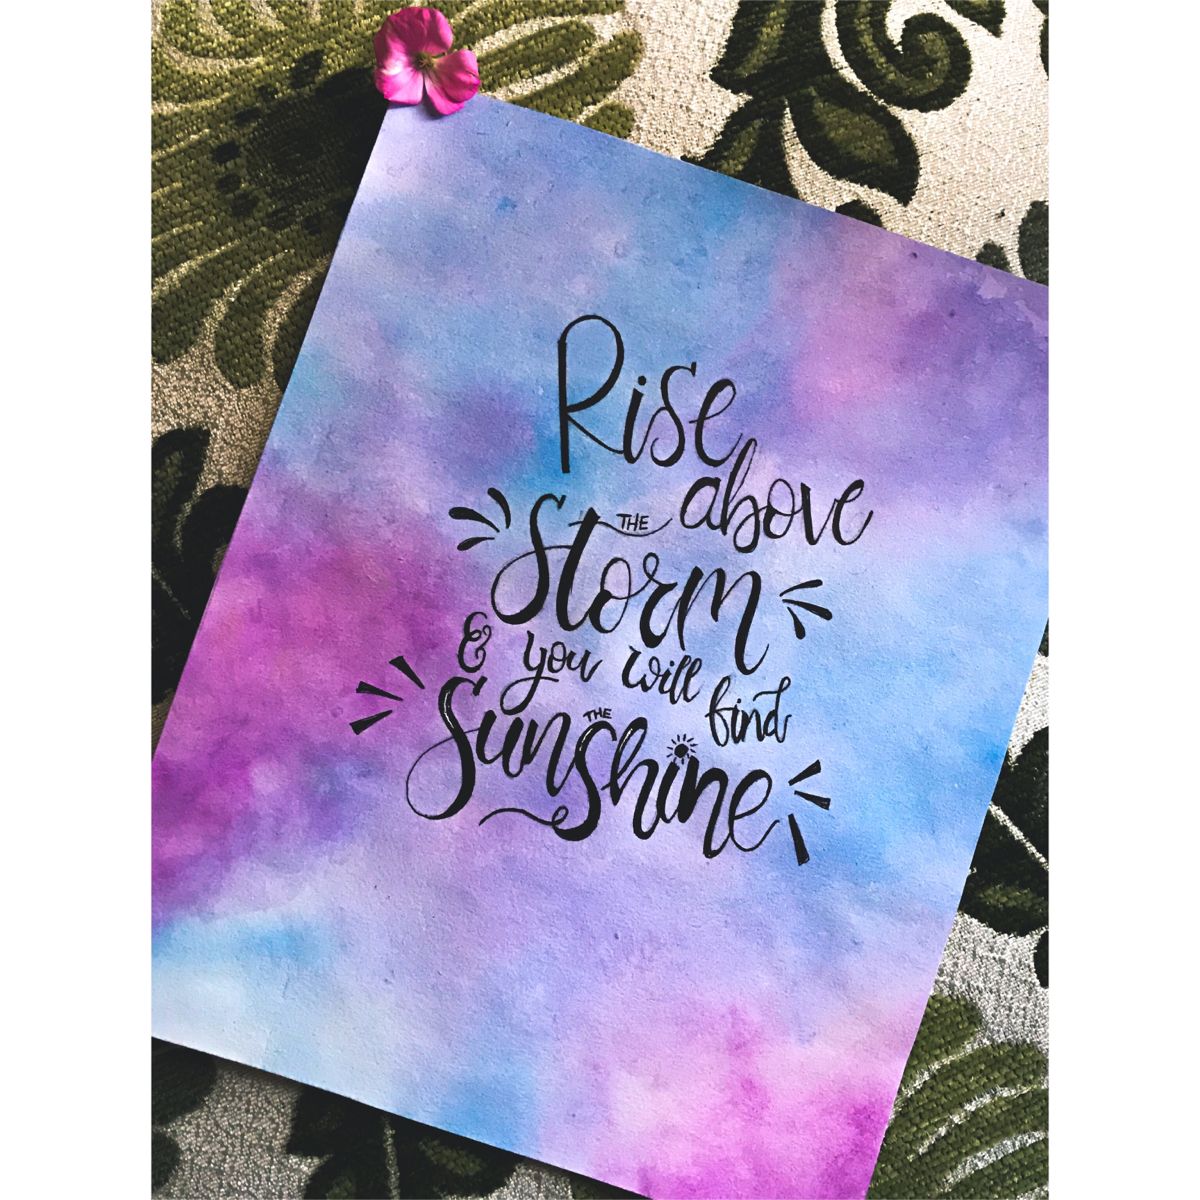 Rise
above
THE
Storm
& you will find
THE
Sunshine